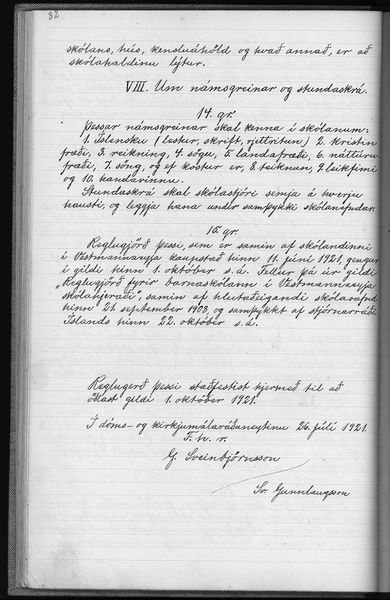 32
skólans, hús, kensluáhöld og hvað annað, er að
skólahaldinu lýtur.
VIII. Um námsgreinar og stundaskrá.
14. gr.
Þessar námsgreinar skal kenna í skólanum:
1. Íslensku (lestur, skrift, rjettritun) 2. kristin
fræði, 3. reikning, 4. sögu, 5. landafræði, 6. náttúru
fræði, 7. söng, og ef kostur er, 8. teiknun, 9. leikfimi
og 10. handavinnu.
Stundaskrá skal skólastjóri semja á hverju
hausti, og leggja hana undir samþykki skólanefndar.
15. gr.
Reglugjörð þessi, sem er samin af skólanefndinni
í Vestmannaeyja kaupstað hinn 11. júní 1921, gengur
í gildi hinn 1. október s.á. Fellur þá úr gildi
„Reglugjörð fyrir barnaskólann í Vestmannaeyja
skólahjeraði", samin af hlutaðeigandi skólanefnd
hinn 21. september 1908, og samþykkt af stjórnarráði
Íslands hinn 22. október s.á.
Reglugerð þessi staðfestist hjermeð til að
öðlast gildi 1. október 1921.
Í dóms- og kirkjumálaráðaneytinu 26. júlí 1921.
F. h. r.
G. Sveinbjörnsson
Sv. Gunnlaugsson